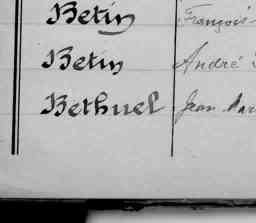 Betin François
Betin André
Bethuel Jean Mar